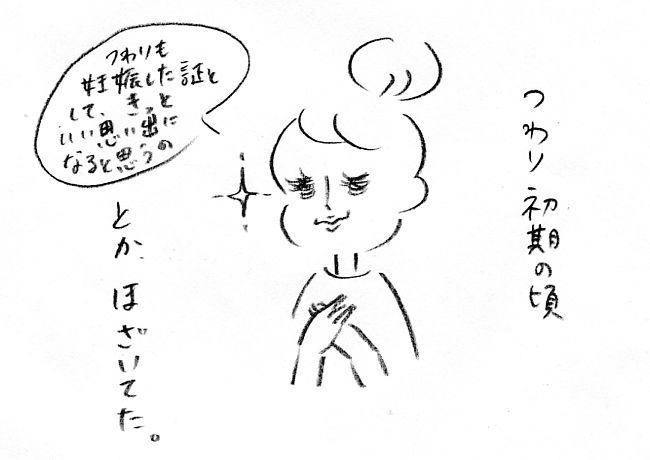 つわり初期の頃
つわりも
妊娠した証と
して、きっと
いい思い出に
なると思うの
とか、ほざいてた。